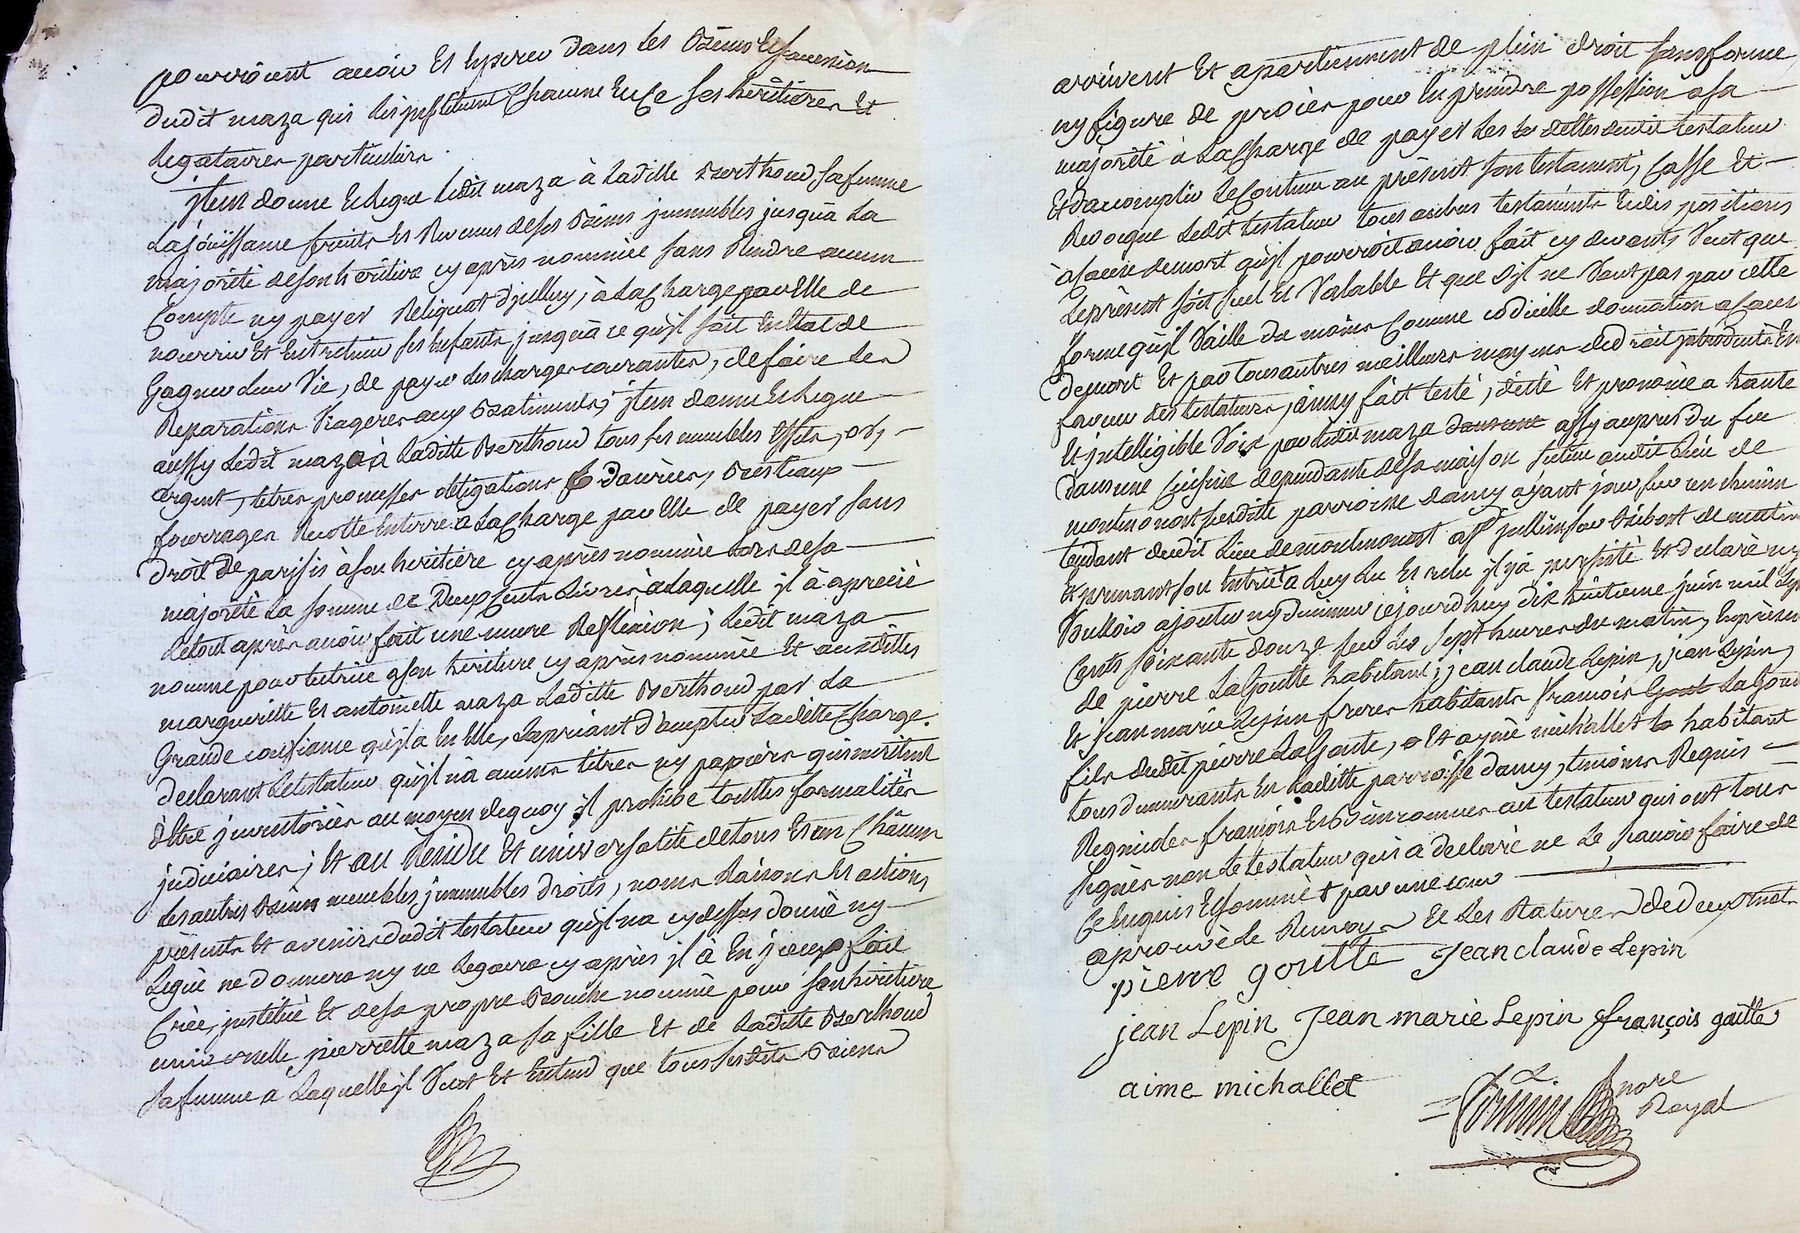 pourroient avoir Et esperer dans les Biens Et sucession
dudit maza qui les institue Chacune En Ce ses héritières Et
legataires particulière.
jtem donne Et legue ledit maza à Laditte Berthoud sa femme
La joüissance fruits Et Revenus de ses Biens jmmeubles jusqu'a La
majorité de son héritière cy après nommée sans Rendre aucun
Compte ny payer Reliquat d'jcelluy, à La Charge par Elle de
nourrir Et Entretenir ses Enfants, jusqu'à ce qu'jl soit En Etat de
Gagner Leur Vie, de payer Les charges courantes, de faire Les
Reparations Viageres aux Batiments, jtem donne Et legue
aussy Ledit maza à Laditte Berthoud tous ses meubles Effets, or,
argent, titres promesses obligations Danrées, Bestiaux
fourrages Recolte En terre a La Charge par Elle de payer sans
droit de parisis à son heritière cy après nommée Lors de sa
majorité La somme de Deux Cents Livres à Laquelle jl à aprecié
Le tout après avoir fait une mure Reflexion; Ledit maza
nomme pour tutrice a son heritiere cy après nommée Et auxdittes
margueritte Et antoinette maza Laditte Berthoud par La
Grande confiance qu'jl a En Elle, La priant d'accepter La dette Charge.
declarant Le testateur qu'jl n'a aucuns titres ny papiers qui meritent
d'Etre jnventoriés au moyen de quoy jl prohibe touttes formalités
judiciaires; Et au Residu Et universalité de tous Et un Chacun
Les autres Biens meubles jmmeubles droits, noms Raisons Et actions
présents Et avenirs dudit testateur qu'jl n'a cy dessus donné ny
Legué ne donnera ny ne Leguera cy après jl à En jceux fait
Créé, jnstitué Et de sa propre Bouche nommé pour son héritière
universelle pierrette maza sa fille Et de Laditte Berthoud
sa femme a Laquelle jl Veut Et Entend que tous sesdits Biens
arrivent Et apartiennent de plein droit sans forme
ny figure de procès pour En prendre possession a sa
majorité à La Charge de payer Les dettes dudit testateur
Et d'accomplir Le Contenu au présent son testament, Casse Et
Revocque Ledit testateur tous autres testaments Et dispositions
à Cause de mort qu'jl pourroit avoir fait cy devants Veut que
Le présent soit seul Et Valable Et que s'jl ne Vaut pas par cette
forme qu'jl Vaille du moins Comme codicille donnation a Cause
de mort Et par tous autres meilleurs moyens de droit jntroduits En
faveur des testateurs, ainsy fait testé, dicté Et prononcé a haute
Et jntelligible Voix par Ledit maza assy auprés du feu
dans une Cuisine dependante de sa maison scituée audit Lieu de
montmonost susditte parroisse damcy ayant jour sur un chemin
tendant dudit Lieu de montmonost
Et prenant son Entrée a Luy Lu Et relu jl y à persisté Et declaré ny
Vulloir ajouter ny diminuer cejourd'huy dix huitieme juin mil sept
Cents soixante douze sur Les sept heures du matin, En présence
de pierre La Goutte habitant, jean claude Lepin, jean Lepin,
Et jean marie Lepin freres habitants francois La Goutte
fils dudit pierre La Goutte, Et aymé michallet habitant
tous demeurants En Laditte parroisse damcy, temoins Requis
Regnicoles françois Et Bien connus au testateur qui ont tous
signés non Le testateur qui a declaré ne Le sçavoir faire de
Ce Enquis Et sommé par une cour
aprouvé Le Renvoy Et Les Ratures de deux mots
pierre goutte Jean claude Lepin
jean Lepin Jean marie Lepin françois goutte
aime michallet
nore
Royal